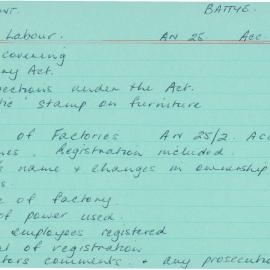 BA774G.
Labour. AN 25 Acc
covering
Act.
ections under the Act.
stamp on furniture
of Factories AN 25/2. Acc
Registration included.
name & changes in ownership
s.
of factory.
of power used.
employees registered
of registration
comments & any prosecut